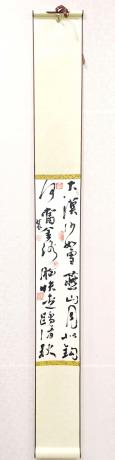 大漠沙如雪燕山月似鉤
何當金絡腦快走踏清秋